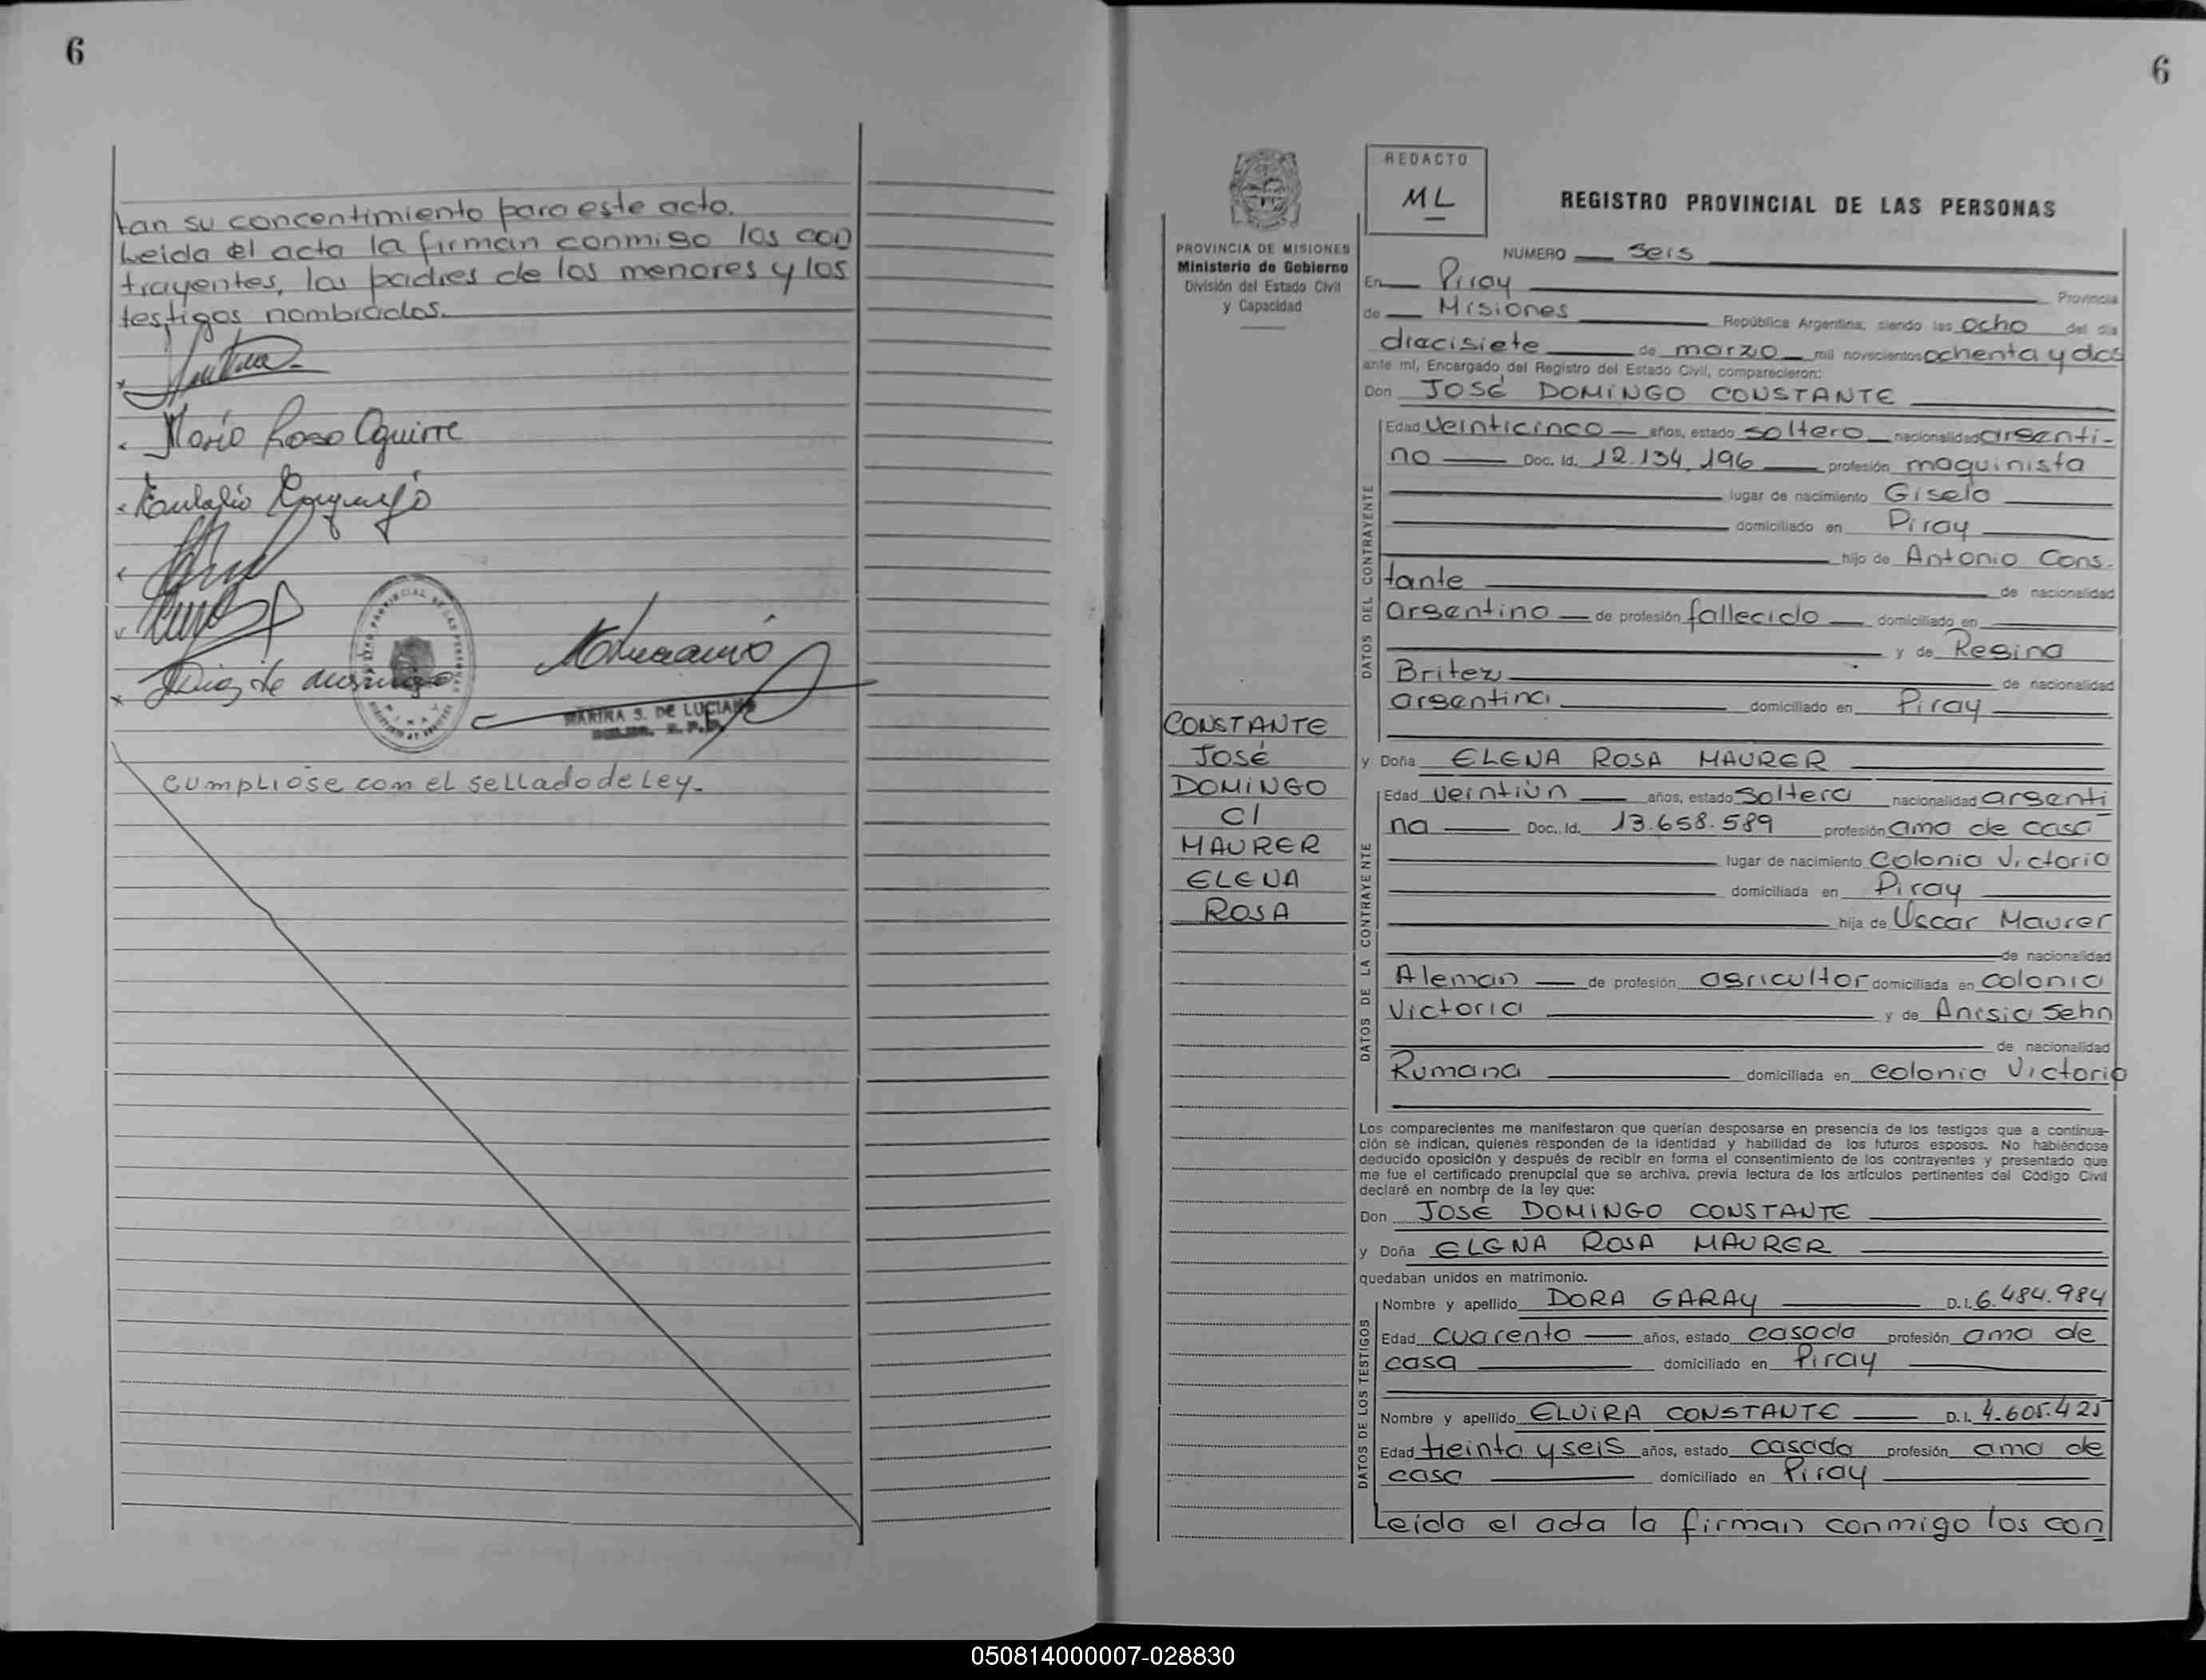 6
tan su concentimiento para este acto.
Leida el acta la firman conmigo los con
trayentes, los padres de los menores y los
testigos nombrados.
Mario Roso Aguirre
MARINA S. DE LUCIANO
cumpliose con el sellado de Ley.
6
REDACTO
ML
REGISTRO PROVINCIAL DE LAS PERSONAS
PROVINCIA DE MISIONES
Ministerio de Gobierno
División del Estado Civil
y Capacidad
NUMERO seis
En Piray Provincia
de Misiones República Argentina, siendo las ocho del día
diecisiete de marzo mil novecientos ochenta y dos
ante mí, Encargado del Registro del Estado Civil, comparecieron:
Don JOSÉ DOMINGO CONSTANTE
DATOS DEL CONTRAYENTE
Edad veinticinco años, estado soltero nacionalidad argenti-
no Doc. Id. 12.134.196 profesión maquinista
lugar de nacimiento Gisela
domiciliado en Piray
hijo de Antonio Cons-
tante de nacionalidad
argentino de profesión fallecido domiciliado en
y de Regina
Britez de nacionalidad
argentina domiciliado en Piray
CONSTANTE
JOSÉ
DOMINGO
C/
MAURER
ELENA
ROSA
y Doña ELENA ROSA MAURER
DATOS DE LA CONTRAYENTE
Edad veintiún años, estado soltera nacionalidad argenti
na Doc. Id. 13.658.589 profesión ama de casa
lugar de nacimiento Colonia Victoria
domiciliada en Piray
hija de Uscar Maurer
de nacionalidad
Aleman de profesión agricultor domiciliada en colonia
Victoria y de Anisia Sehn
de nacionalidad
Rumana domiciliada en colonia Victoria
Los comparecientes me manifestaron que querían desposarse en presencia de los testigos que a continua-
ción se indican, quienes responden de la identidad y habilidad de los futuros esposos. No habiéndose
deducido oposición y después de recibir en forma el consentimiento de los contrayentes y presentado que
me fue el certificado prenupcial que se archiva, previa lectura de los artículos pertinentes del Código Civil
declaré en nombre de la ley que:
Don JOSÉ DOMINGO CONSTANTE
y Doña ELENA ROSA MAURER
quedaban unidos en matrimonio.
DATOS DE LOS TESTIGOS
Nombre y apellido DORA GARAY D.I. 6.484.984
Edad cuarenta años, estado casada profesión ama de
casa domiciliado en Piray
Nombre y apellido ELVIRA CONSTANTE D.I. 4.605.425
Edad treinta y seis años, estado casada profesión ama de
casa domiciliado en Piray
Leida el acta la firman conmigo los con
050814000007-028830